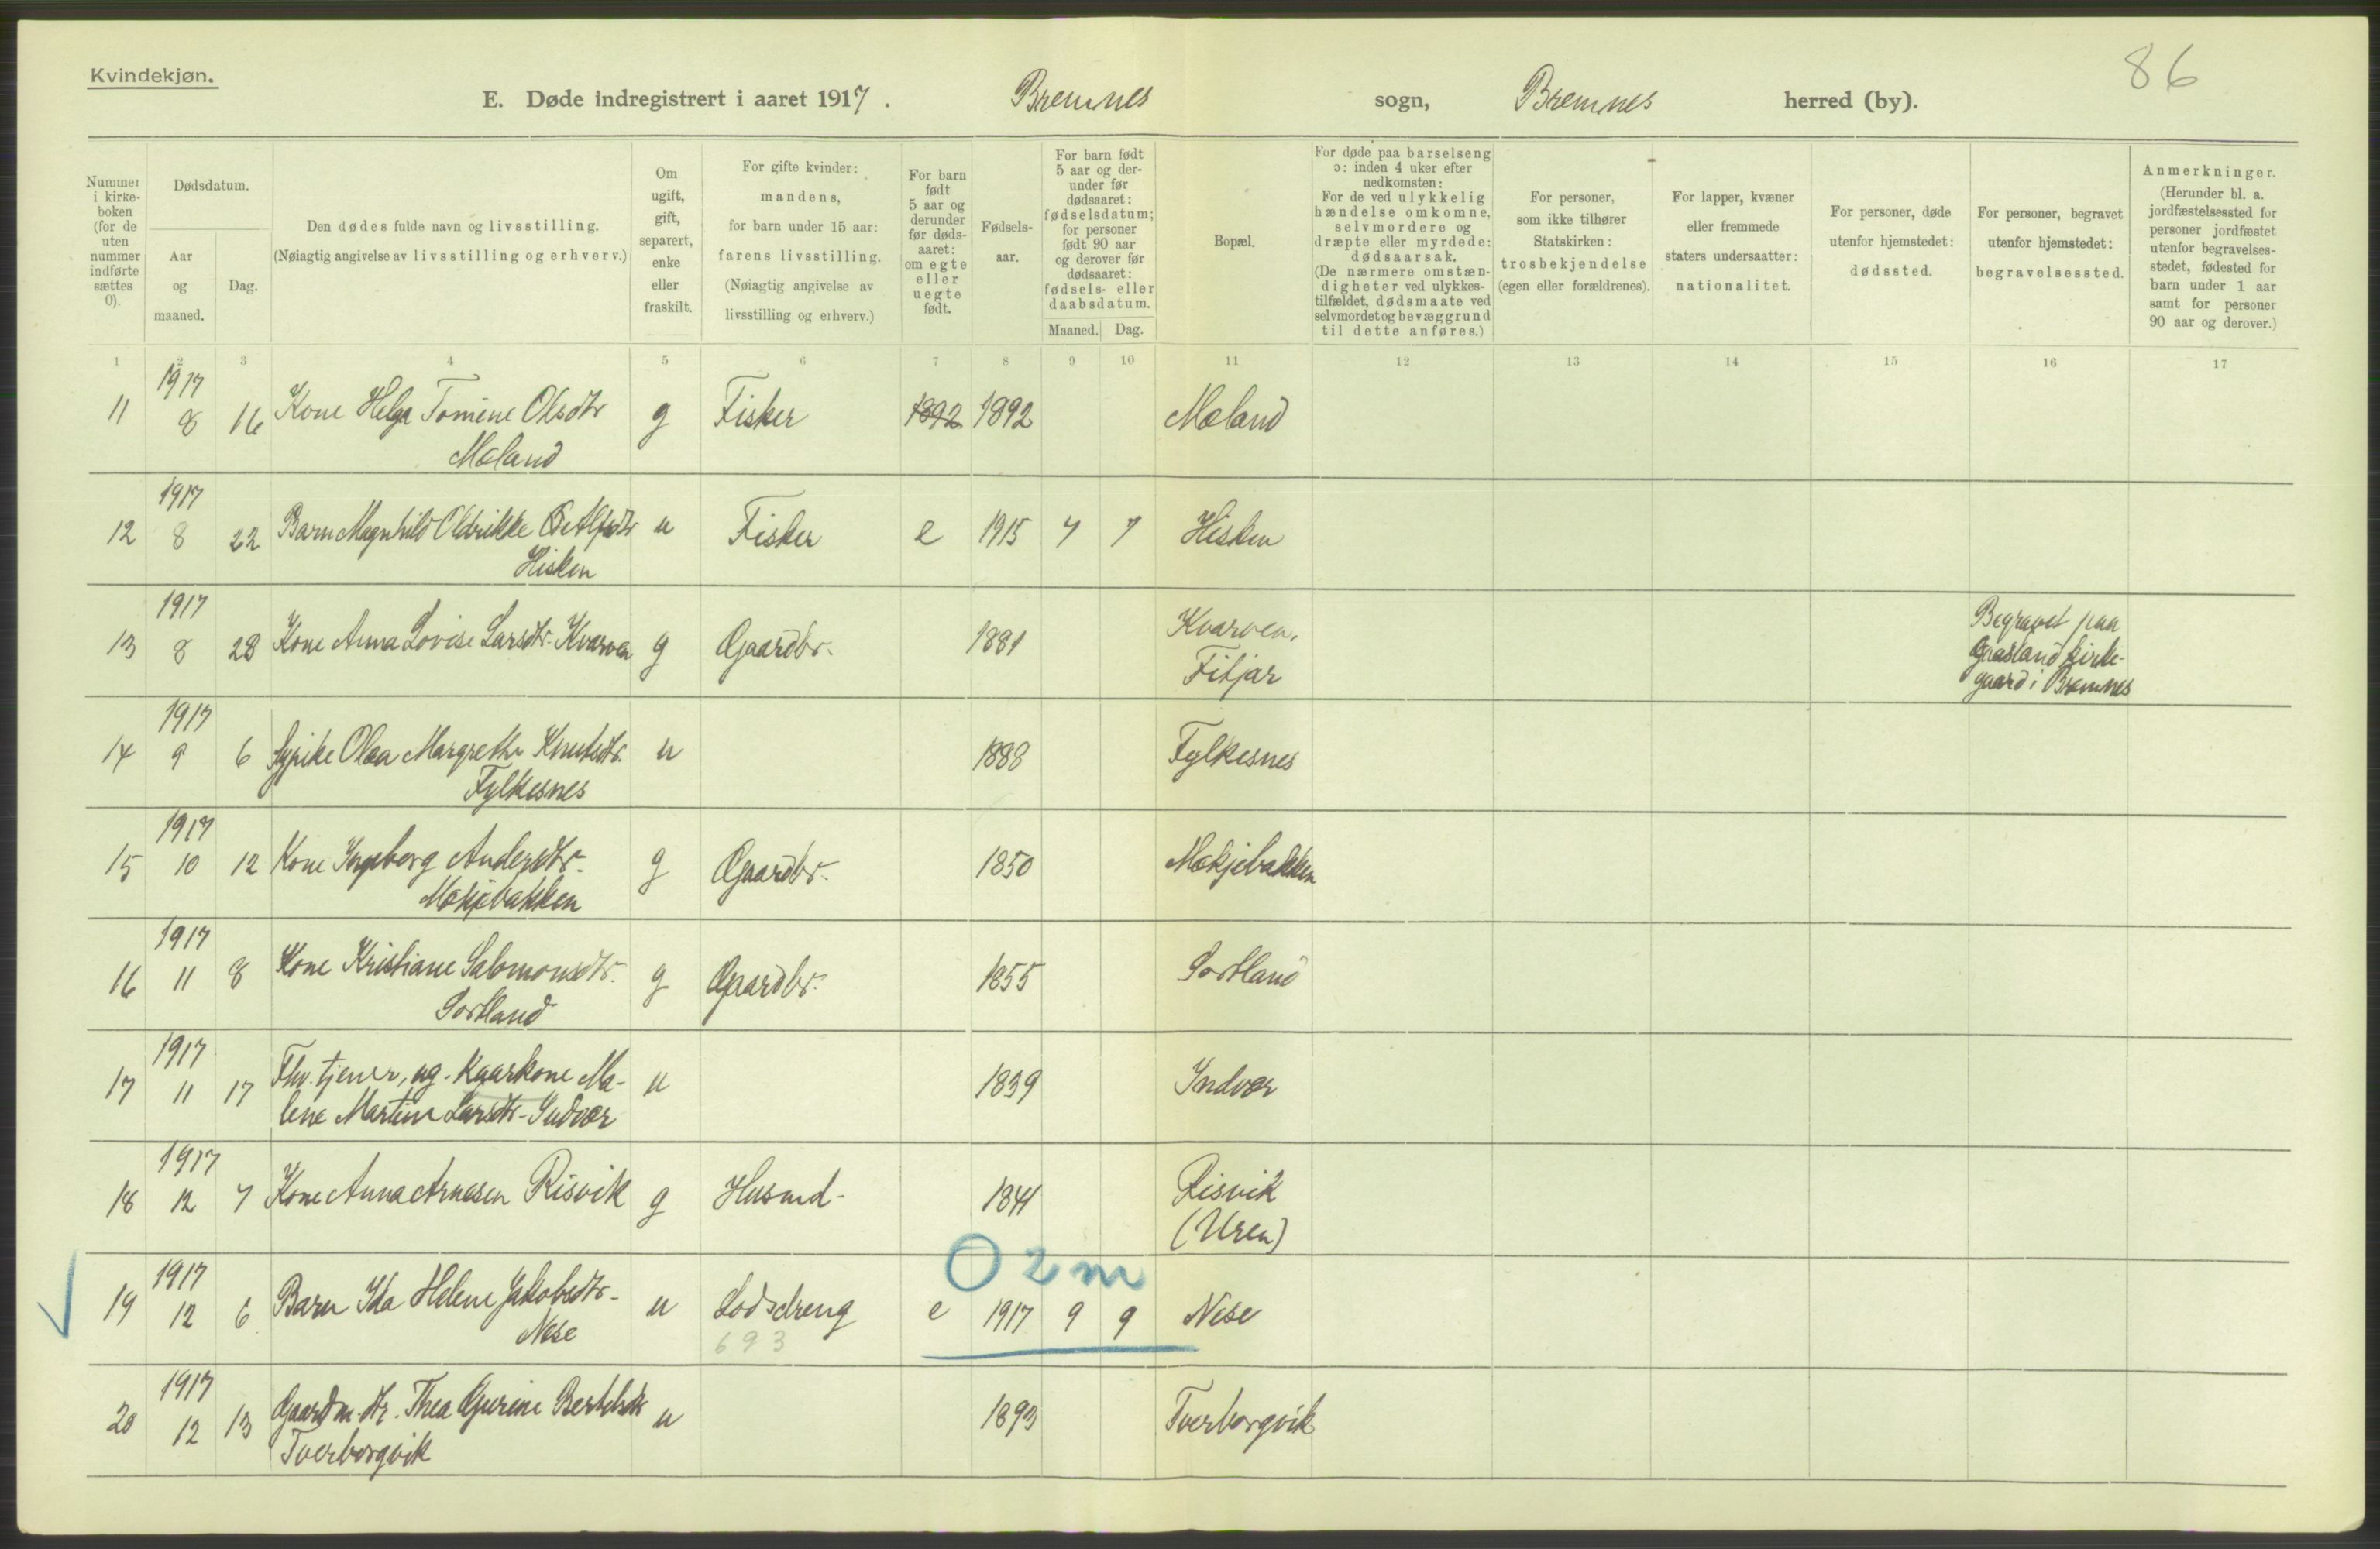 Kvindekjøn.
86
E. Døde indregistrert i aaret 1917. Bremnes sogn, Bremnes herred (by).
Nummer i kirkeboken (for de uten nummer indførte sættes 0).
Dødsdatum.
Aar og maaned.
Dag.
Den dødes fulde navn og livsstilling.
(Nøiagtig angivelse av livsstilling og erhverv.)
Om ugift, gift, separert, enke eller fraskilt.
For gifte kvinder: mandens, for barn under 15 aar: farens livsstilling. (Nøiagtig angivelse av livsstilling og erhverv.)
For barn født 5 aar og derunder før dødsaaret: om egte eller uegte født.
Fødselsaar.
For barn født 5 aar og derunder før dødsaaret: fødselsdatum; for personer født 90 aar og derover før dødsaaret: fødsels- eller daabsdatum.
Maaned. Dag.
Bopæl.
For døde paa barselseng ɔ: inden 4 uker efter nedkomsten: For de ved ulykkelig hændelse omkomne, selvmordere og dræpte eller myrdede: dødsaarsak. (De nærmere omstændigheter ved ulykkestilfældet, dødsmaate ved selvmordet og bevæggrund til dette anføres.)
For personer, som ikke tilhører Statskirken: trosbekjendelse (egen eller forældrenes).
For lapper, kvæner eller fremmede staters undersaatter: nationalitet.
For personer, døde utenfor hjemstedet: dødssted.
For personer, begravet utenfor hjemstedet: begravelsessted.
Anmerkninger. (Herunder bl. a. jordfæstelsessted for personer jordfæstet utenfor begravelsesstedet, fødested for barn under 1 aar samt for personer 90 aar og derover.)
1 2 3 4 5 6 7 8 9 10 11 12 13 14 15 16 17
1917
11 8 16 Kone Helga Tomine Olsdtr g Fisker 1892 1892 Mæland
Mæland
1917
12 8 22 Barn Magnhild Oldrikke u Fisker e 1915 7 7 Hisken
Hisken
1917
13 8 28 Kone Anna Lovise Larsdtr. Kvarven g Gaardbr. 1881 Kvarven, Fitjar
Begravet paa Gaasland kirkegaard i Bremnes
1917
14 9 6 Pike Olea Margrethe Knutsdtr. u 1888 Fylkesnes
Fylkesnes
1917
15 10 12 Kone Ingeborg Andersdtr. g Gaardbr. 1850 Mækjebakken
Mækjebakken
1917
16 11 8 Kone Kristiane Salomonsdtr. g Gaardbr. 1855 Sortland
Sortland
1917
17 11 17 Fhv. tjener, ug. Kaarkone Ma- u 1839 Indvær
lene Martine Larsdtr. Indvær
1917
18 12 7 Kone Anna Arnesen Risvik g Husmd. 1841 Risvik
(Uren)
0 2 m
1917
19 12 6 Barn Ida Helene Jakobsdtr. u Lodsdreng e 1917 9 9 Nese
Nese
693
1917
20 12 13 Gaardm. dtr. Thea Gurine Bertelsdtr u 1893 Tverborgvik
Tverborgvik